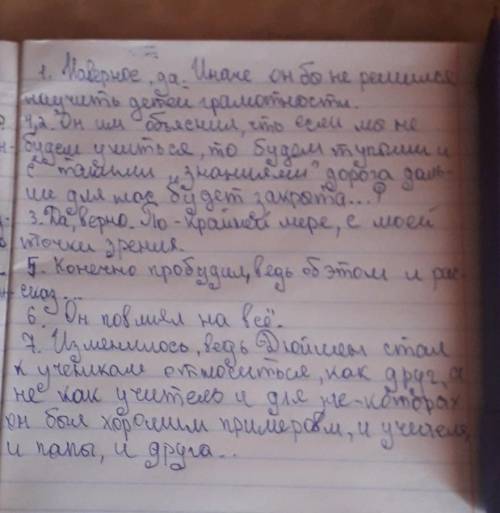 1. Наверное, да. Иначе он бо не решился
научить детей грамотности.
4,2. Он им объяснил, что если мы не
будем учиться, то будем тупыми и
с такими "знаниями" дорога даль-
ше для нас будет закрыта...?
3. Да, верно. По-крайней мере, с моей
точки зрения.
5. Конечно пробудил, ведь об этом и рас-
сказ...
6. Он повлиял на всё.
7. Изменилось, ведь Дюйшен стал
к ученикам относиться, как друг, а
не как учитель и для не-которых
он был хорошим примером, и учителя,
и папы, и друга...